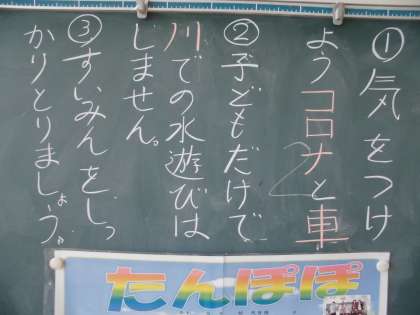 ①気をつけ
ようコロナと車
②子どもだけで
川での水遊びは
しません。
③すいみんをしっ
かりとりましょう。
たんぽぽ